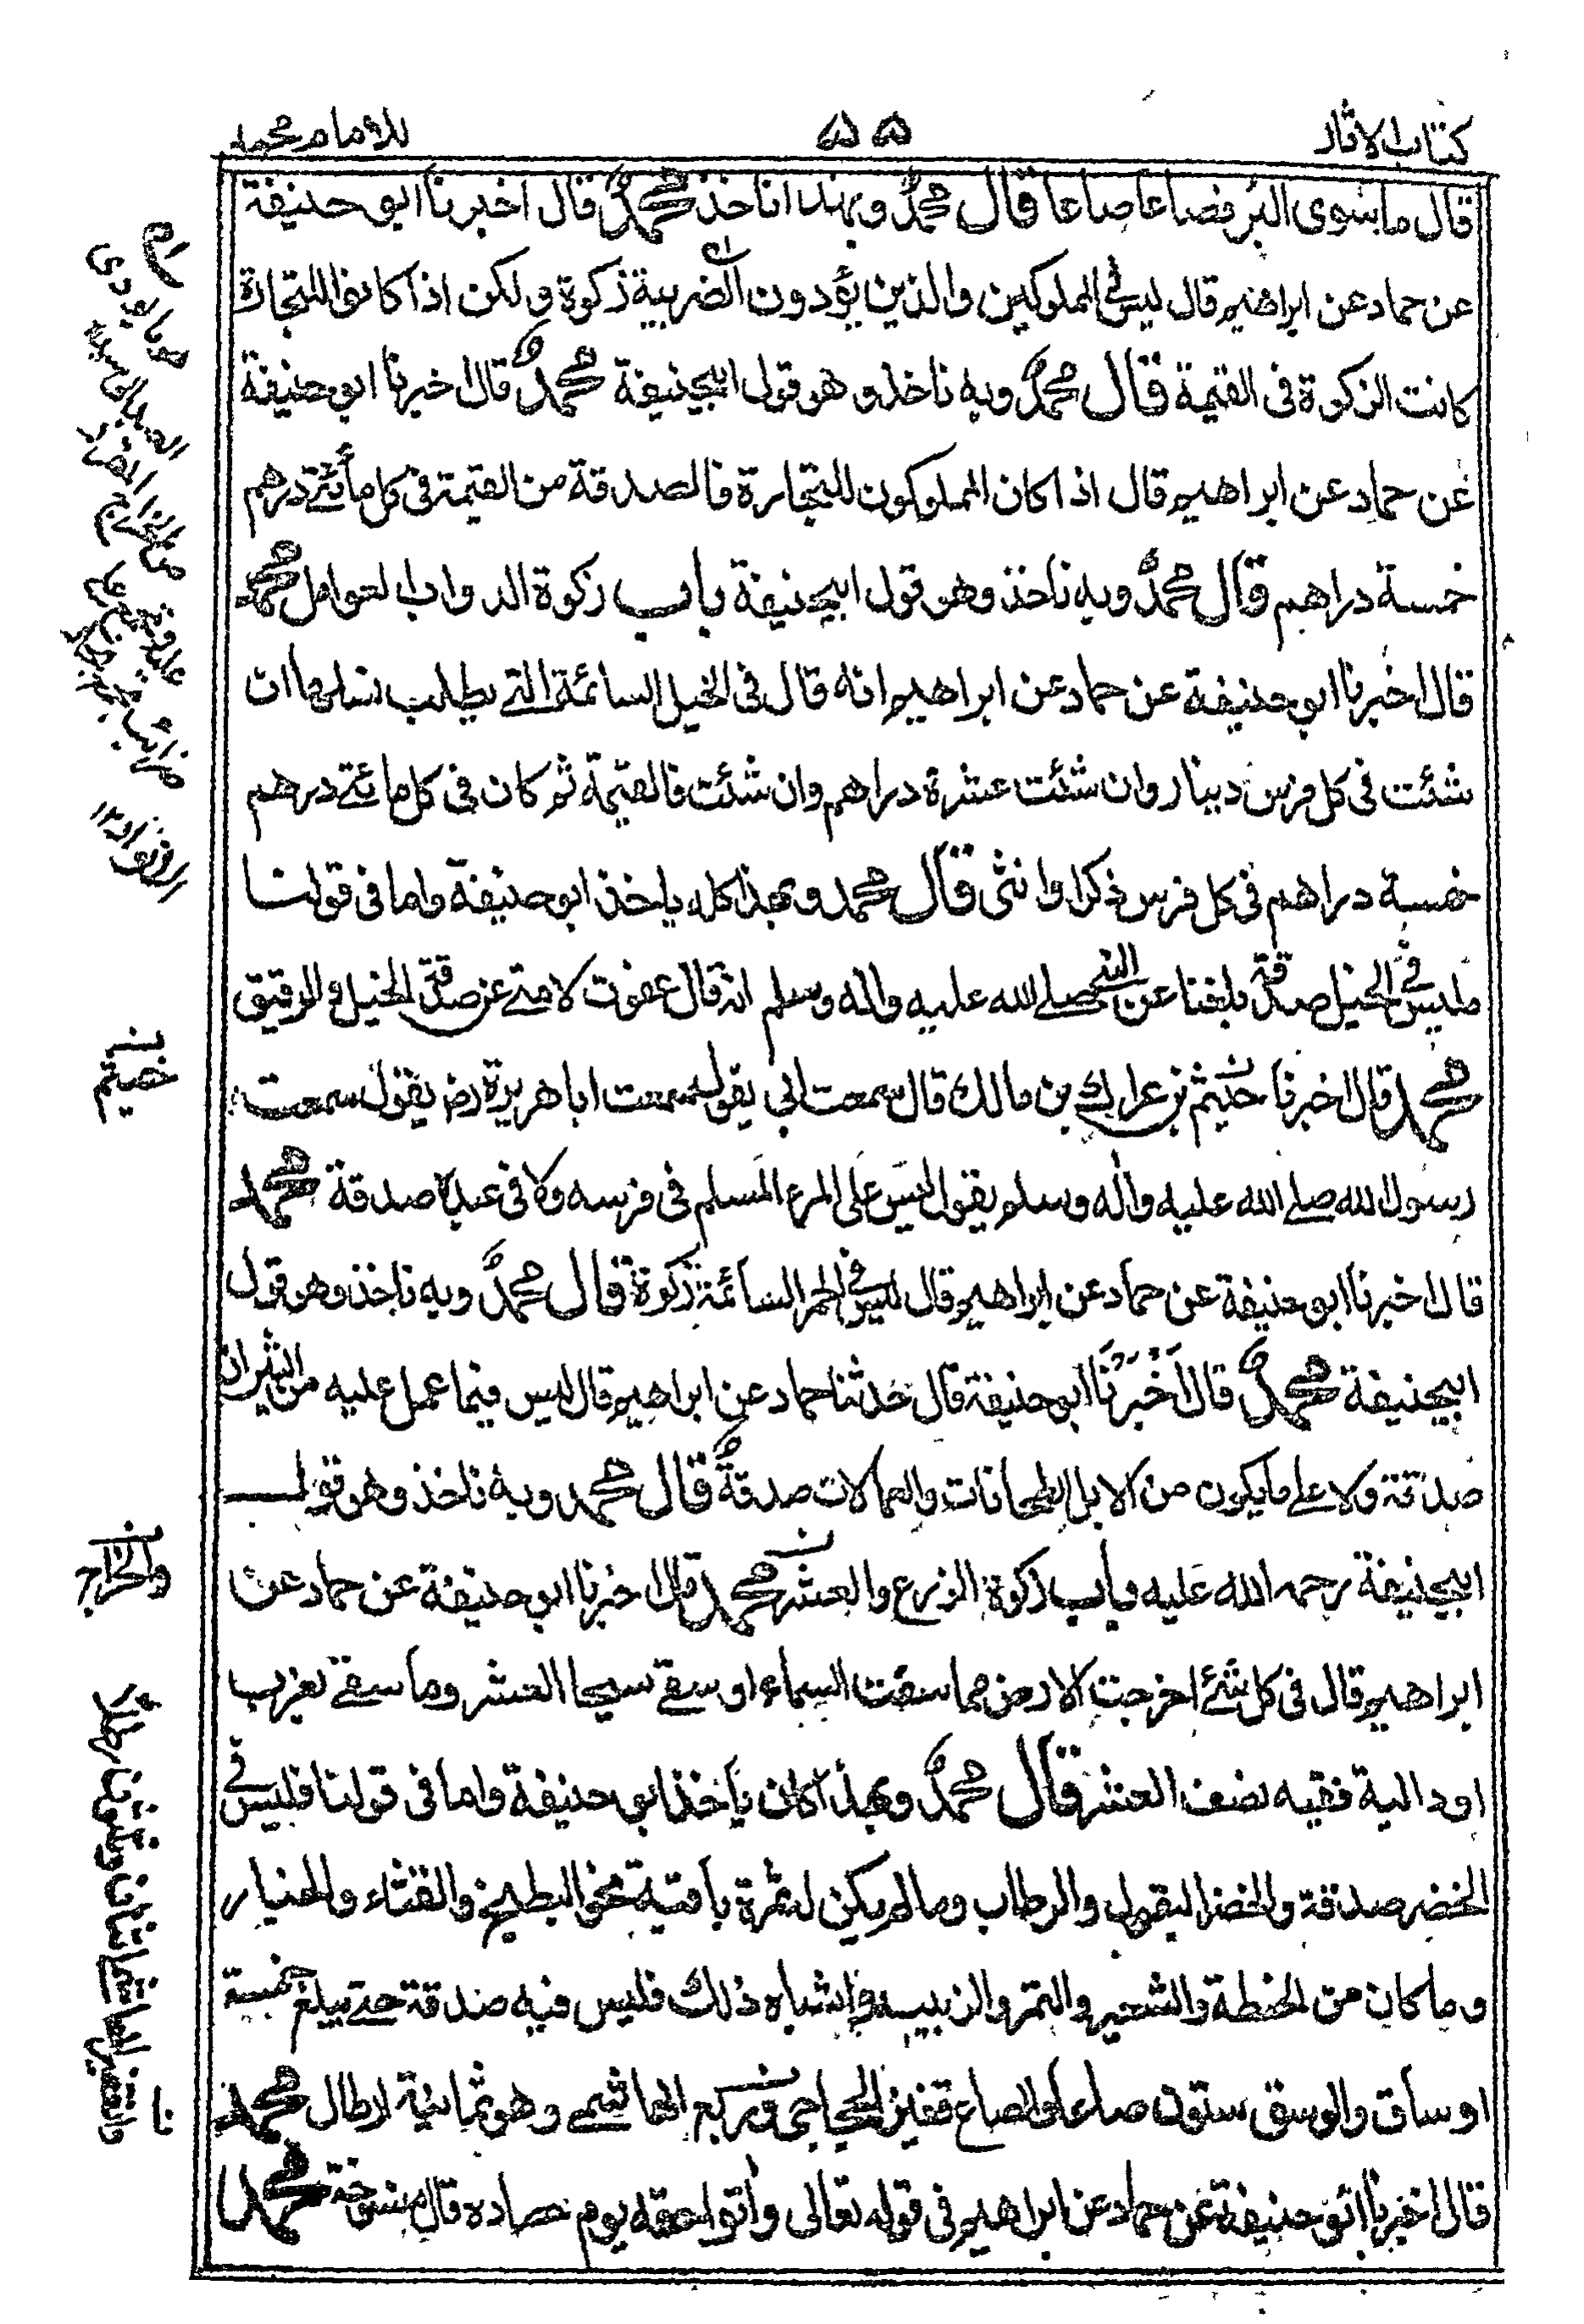 كتاب الاثار
٥٥
للامام محمد
قال ما سوى البر فصاعا صاعا قال محمد وبهذا ناخذ محمد قال اخبرنا ابو حنيفة
عن حماد عن ابراهيم قال ليس في المملوكين والذين يؤدون الضريبة زكوة ولكن اذا كانوا للتجارة
كانت الزكوة في القيمة قال محمد وبه ناخذ وهو قول ابيحنيفة محمد قال اخبرنا ابو حنيفة
عن حماد عن ابراهيم قال اذا كان المملوكون للتجارة فالصدقة من القيمة في كل مأتے درهم
خمسة دراهم قال محمد وبه ناخذ وهو قول ابيحنيفة باب زكوة الدواب العوامل محمد
قال اخبرنا ابو حنيفة عن حماد عن ابراهيم انه قال في الخيل السائمة التے يطلب نسلها ان
شئت في كل فرس دينار وان شئت عشرة دراهم وان شئت فالقيمة ثم كان في كل مائتے درهم
خمسة دراهم في كل فرس ذكرا وانثى قال محمد وبهذا كله ياخذ ابو حنيفة واما في قولنا
فليس في الخيل صدقة بلغنا عن النبي صلے الله عليه واله وسلم انه قال عفوت لامتے عن صدقة الخيل والرقيق
محمد قال اخبرنا خثيم بن عراك بن مالك قال سمعت ابي يقول سمعت ابا هريرة رض يقول سمعت
رسول الله صلے الله عليه واله وسلم يقول ليس على المرء المسلم في فرسه ولا في عبده صدقة محمد
قال اخبرنا ابو حنيفة عن حماد عن ابراهيم قال ليس في الحمر السائمة زكوة قال محمد وبه ناخذ وهو قول
ابيحنيفة محمد قال اخبرنا ابو حنيفة قال حدثنا حماد عن ابراهيم قال ليس فيما عمل عليه من الثيران
صدقة ولا على ما يكون من الابل الطحانات والعمالات صدقة قال محمد وبه ناخذ وهو قول
ابيحنيفة رحمه الله عليه باب زكوة الزرع والعشر محمد قال اخبرنا ابو حنيفة عن حماد عن
ابراهيم قال في كل شئ اخرجت الارض مما سقت السماء او سقے سيحا العشر وما سقے بغرب
او دالية ففيه نصف العشر قال محمد وبهذا كان ياخذ ابو حنيفة واما في قولنا فليس في
الخضر صدقة والخضر البقول والرطاب وما لم يكن له ثمرة باقية نحو البطيخ والقثاء والخيار
وما كان من الحنطة والشعير والتمر والزبيب واشباه ذلك فليس فيه صدقة حتے يبلغ خمسة
اوساق والوسق ستون صاعا والصاع قفيز الحجاجي وربع الهاشمے وهو ثمانية ارطال محمد
قال اخبرنا ابو حنيفة عن حماد عن ابراهيم في قوله تعالى واتوا حقه يوم حصاده قال منسوخة محمد
خيثم
والخراج